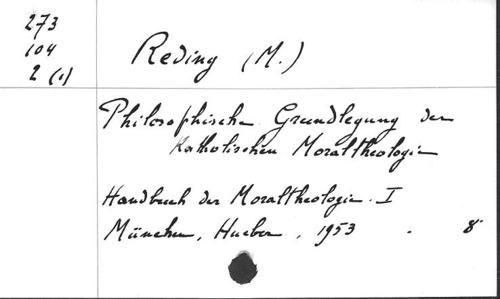 273
104
2 (1)
Reding (M.)
Philosophische Grundlegung der
Katholischen Moraltheologie
Handbuch der Moraltheologie. I
München, Hueber, 1953 . 8°